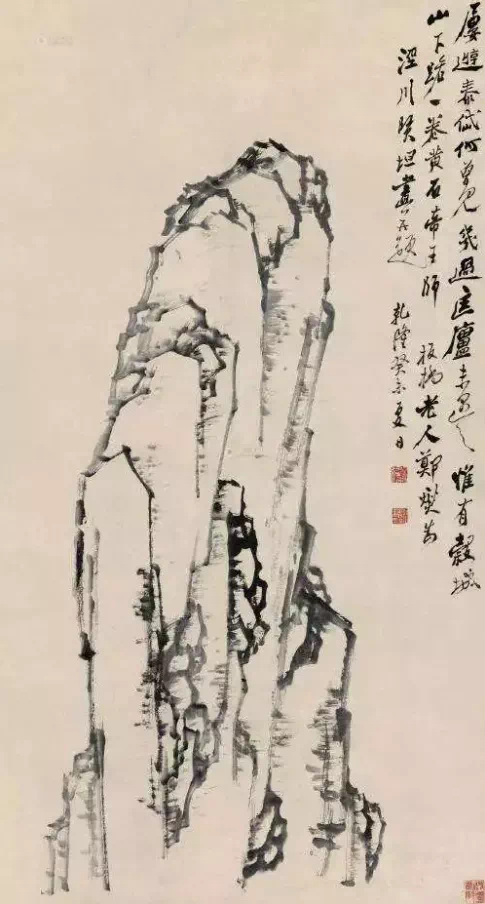 屢遊泰岱何曾見幾過匡廬未遇之惟有穀城
山下路一卷黃石帝王師 板橋老人鄭燮為
涇川賢坦畫并題 乾隆癸未夏日